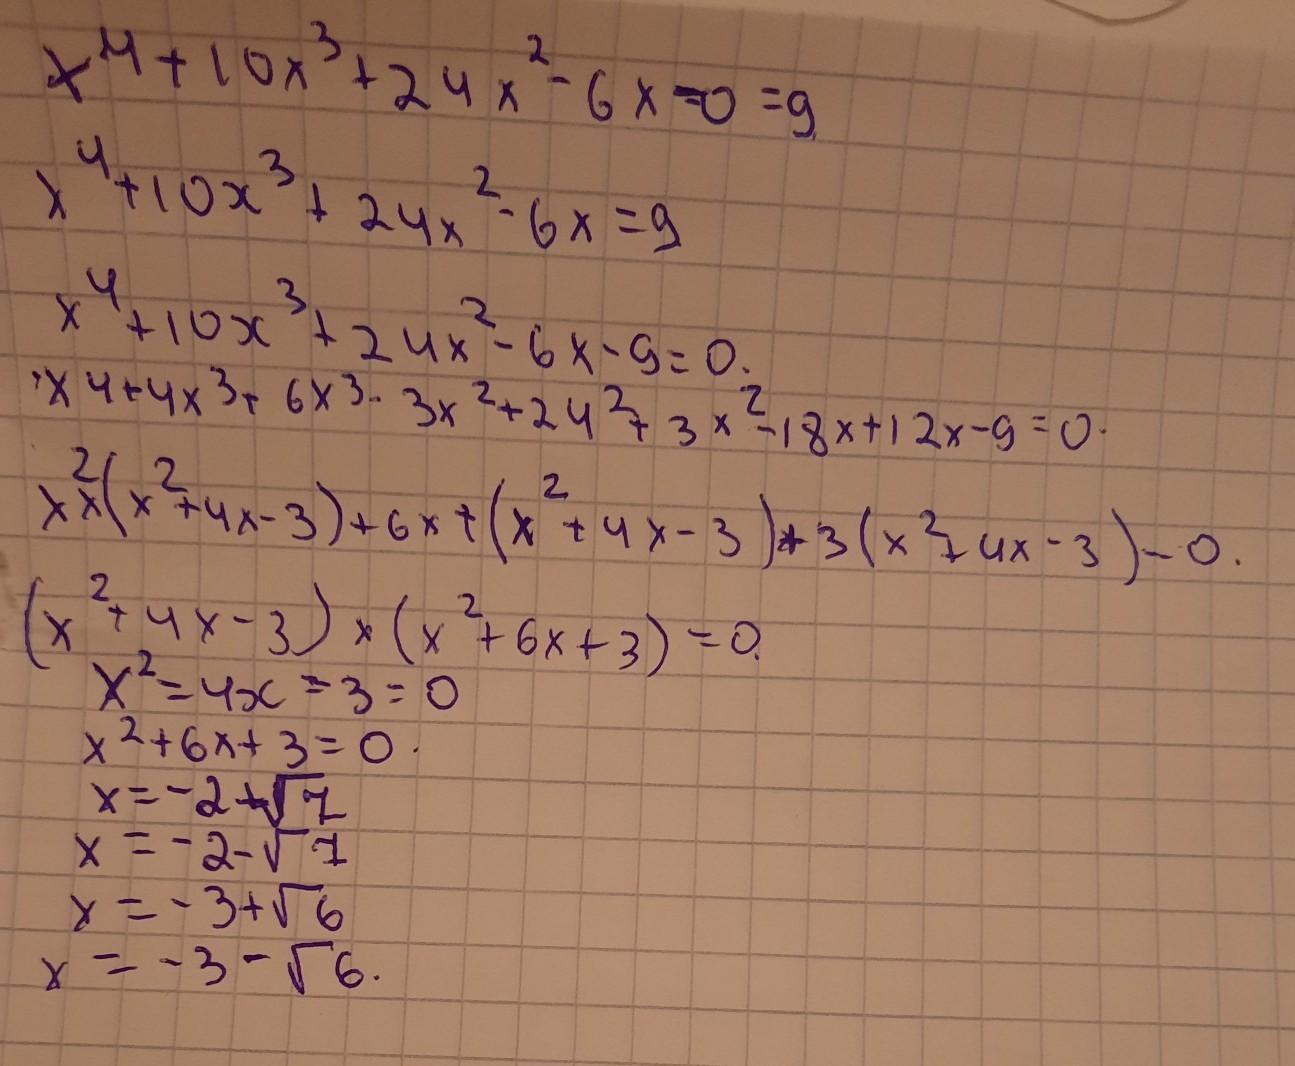 x⁴+10x³+24x²-6x-0=9
x⁴+10x³+24x²-6x=9
x⁴+10x³+24x²-6x-9=0.
x4+4x³+6x³-3x²+24²+3x²-18x+12x-9=0.
xx²(x²+4x-3)+6x+(x²+4x-3)+3(x²+4x-3)-0.
(x²+4x-3)x(x²+6x+3)=0.
x²=4x=3=0
x²+6x+3=0.
x=-2+√7
x=-2-√7
x=-3+√6
x=-3-√6.